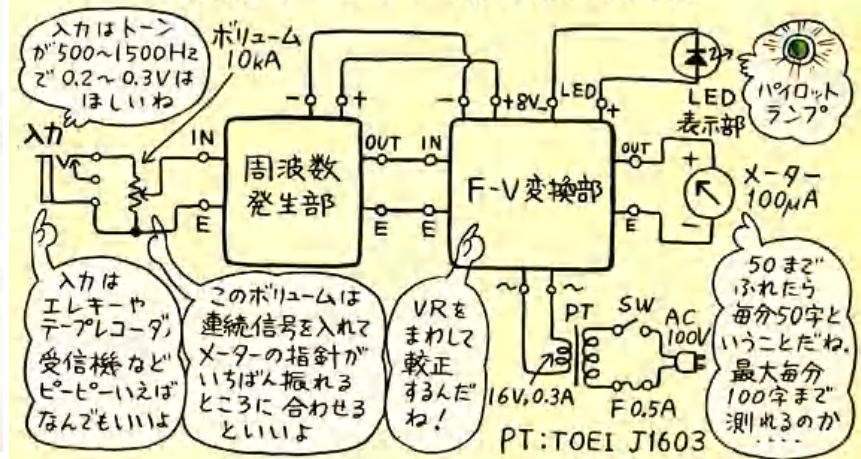 入力はトーン
が500~1500Hz
で0.2~0.3Vは
ほしいね
ボリューム
10kA
入力
IN
E
周波数
発生部
-
+
OUT
E
IN
E
-
+8V
-
LED
+
F-V変換部
OUT
E
LED
表示部
パイロット
ランプ
+
-
メーター
100μA
入力は
エレキーや
テープレコーダ,
受信機など
ピーピーいえば
なんでもいいよ
このボリュームは
連続信号を入れて
メーターの指針が
いちばん振れる
ところに合わせる
といいよ
VRを
まわして
較正
するんだ
ね!
~
~
PT
SW
AC
100V
16V,0.3A
F0.5A
PT:TOEI J1603
50まで
ふれたら
毎分50字と
いうことだね.
最大毎分
100字まで
測れるのか
････